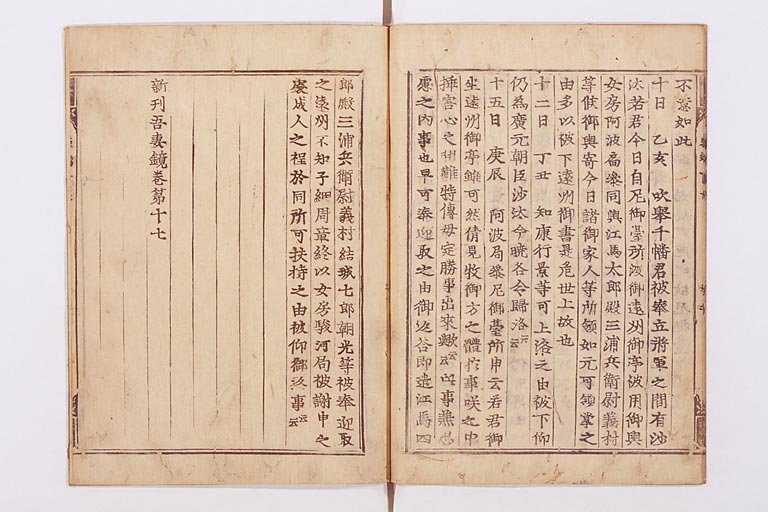 不意如此
十日　乙亥　吹擧千幡君被奉立將軍之間有沙
汰若君今日自尼御臺所渡御遠州御亭被用御輿
女房阿波局參同輿江馬太郎殿三浦兵衛尉義村
等候御輿寄今日諸御家人等所領如元可領掌之
由多以被下遠州御書是危世上故也
十二日　丁丑　知康行景等可上洛之由被下仰
仍為廣元朝臣沙汰今曉各令歸洛云云
十五日　庚辰　阿波局參尼御臺所申云若君御
坐遠州御亭雖可然倩見牧御方之體於事咲之中
挿害心之間難恃傅母定勝事出來歟云云此事兼思
慮之内事也早可奉迎取之由御返答即遣江馬四
郎殿三浦兵衛尉義村結城七郎朝光等被奉迎取
之遠州不知子細周章終以女房駿河局被謝申之
處成人之程於同所可扶持之由被仰御返事云云
新刊吾妻鏡卷第十七